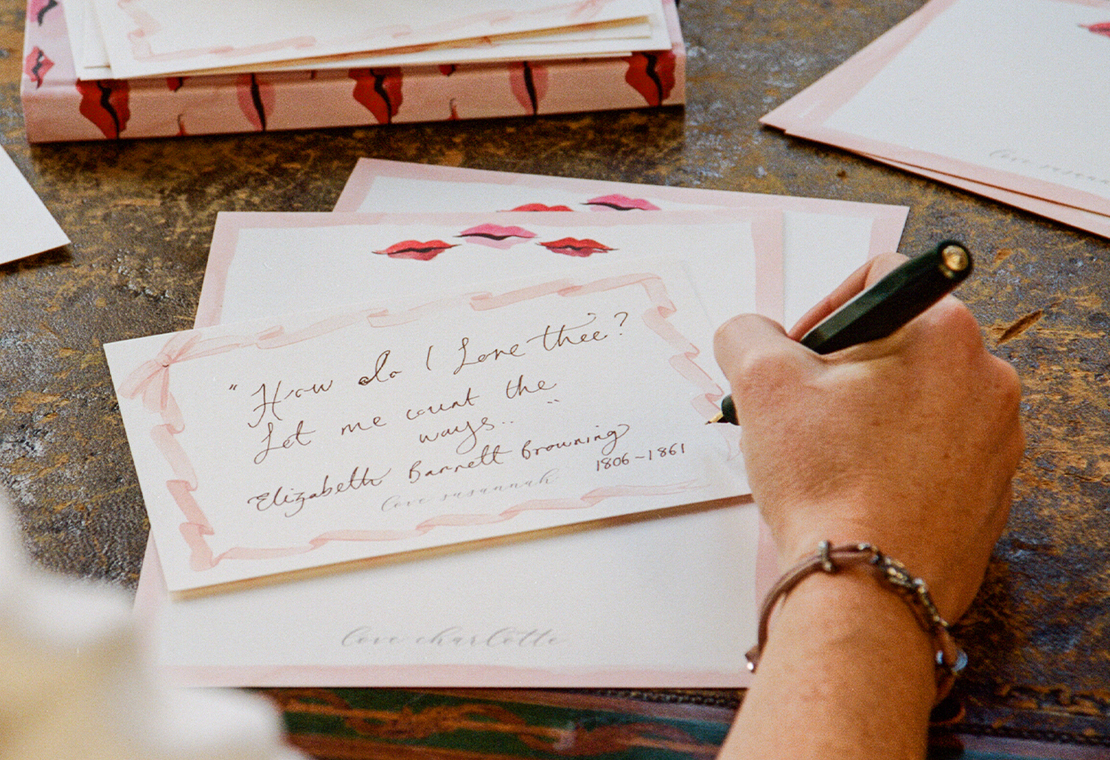 "How do I Love thee?
Let me count the
ways.."
Elizabeth Barrett Browning
1806-1861
love susannah
love charlotte
love susannah